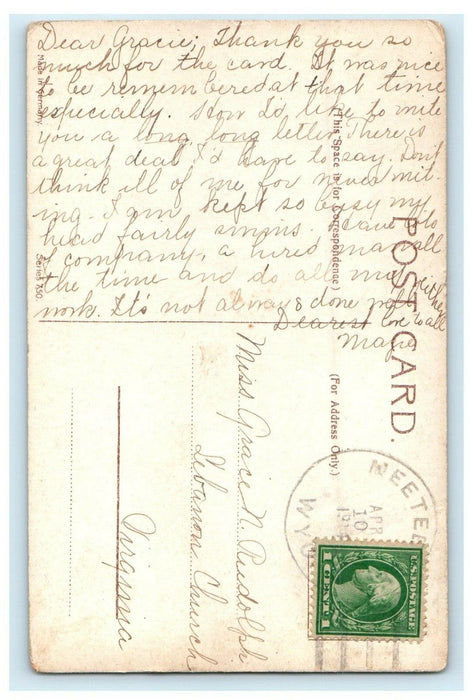 Dear Gracie; Thank you so
much for the card. It was nice
to be remembered at that time
especially. How I'd like to write
you a long, long letter. There is
a great deal I'd have to say. Don't
think ill of me for never writ-
ing. I am kept so busy my
head fairly swims. Have lots
of company, a hired man all
the time and do all my
work. It's not always done
Dearest love to all
Made in Germany.
Series 750.
(This Space is for Correspondence)
POST CARD.
(For Address Only.)
Miss Grace N. Rudolph
Lebanon Church
Virginia
MEETEE
APR
10
WYO
U.S. POSTAGE
1 CENT 1